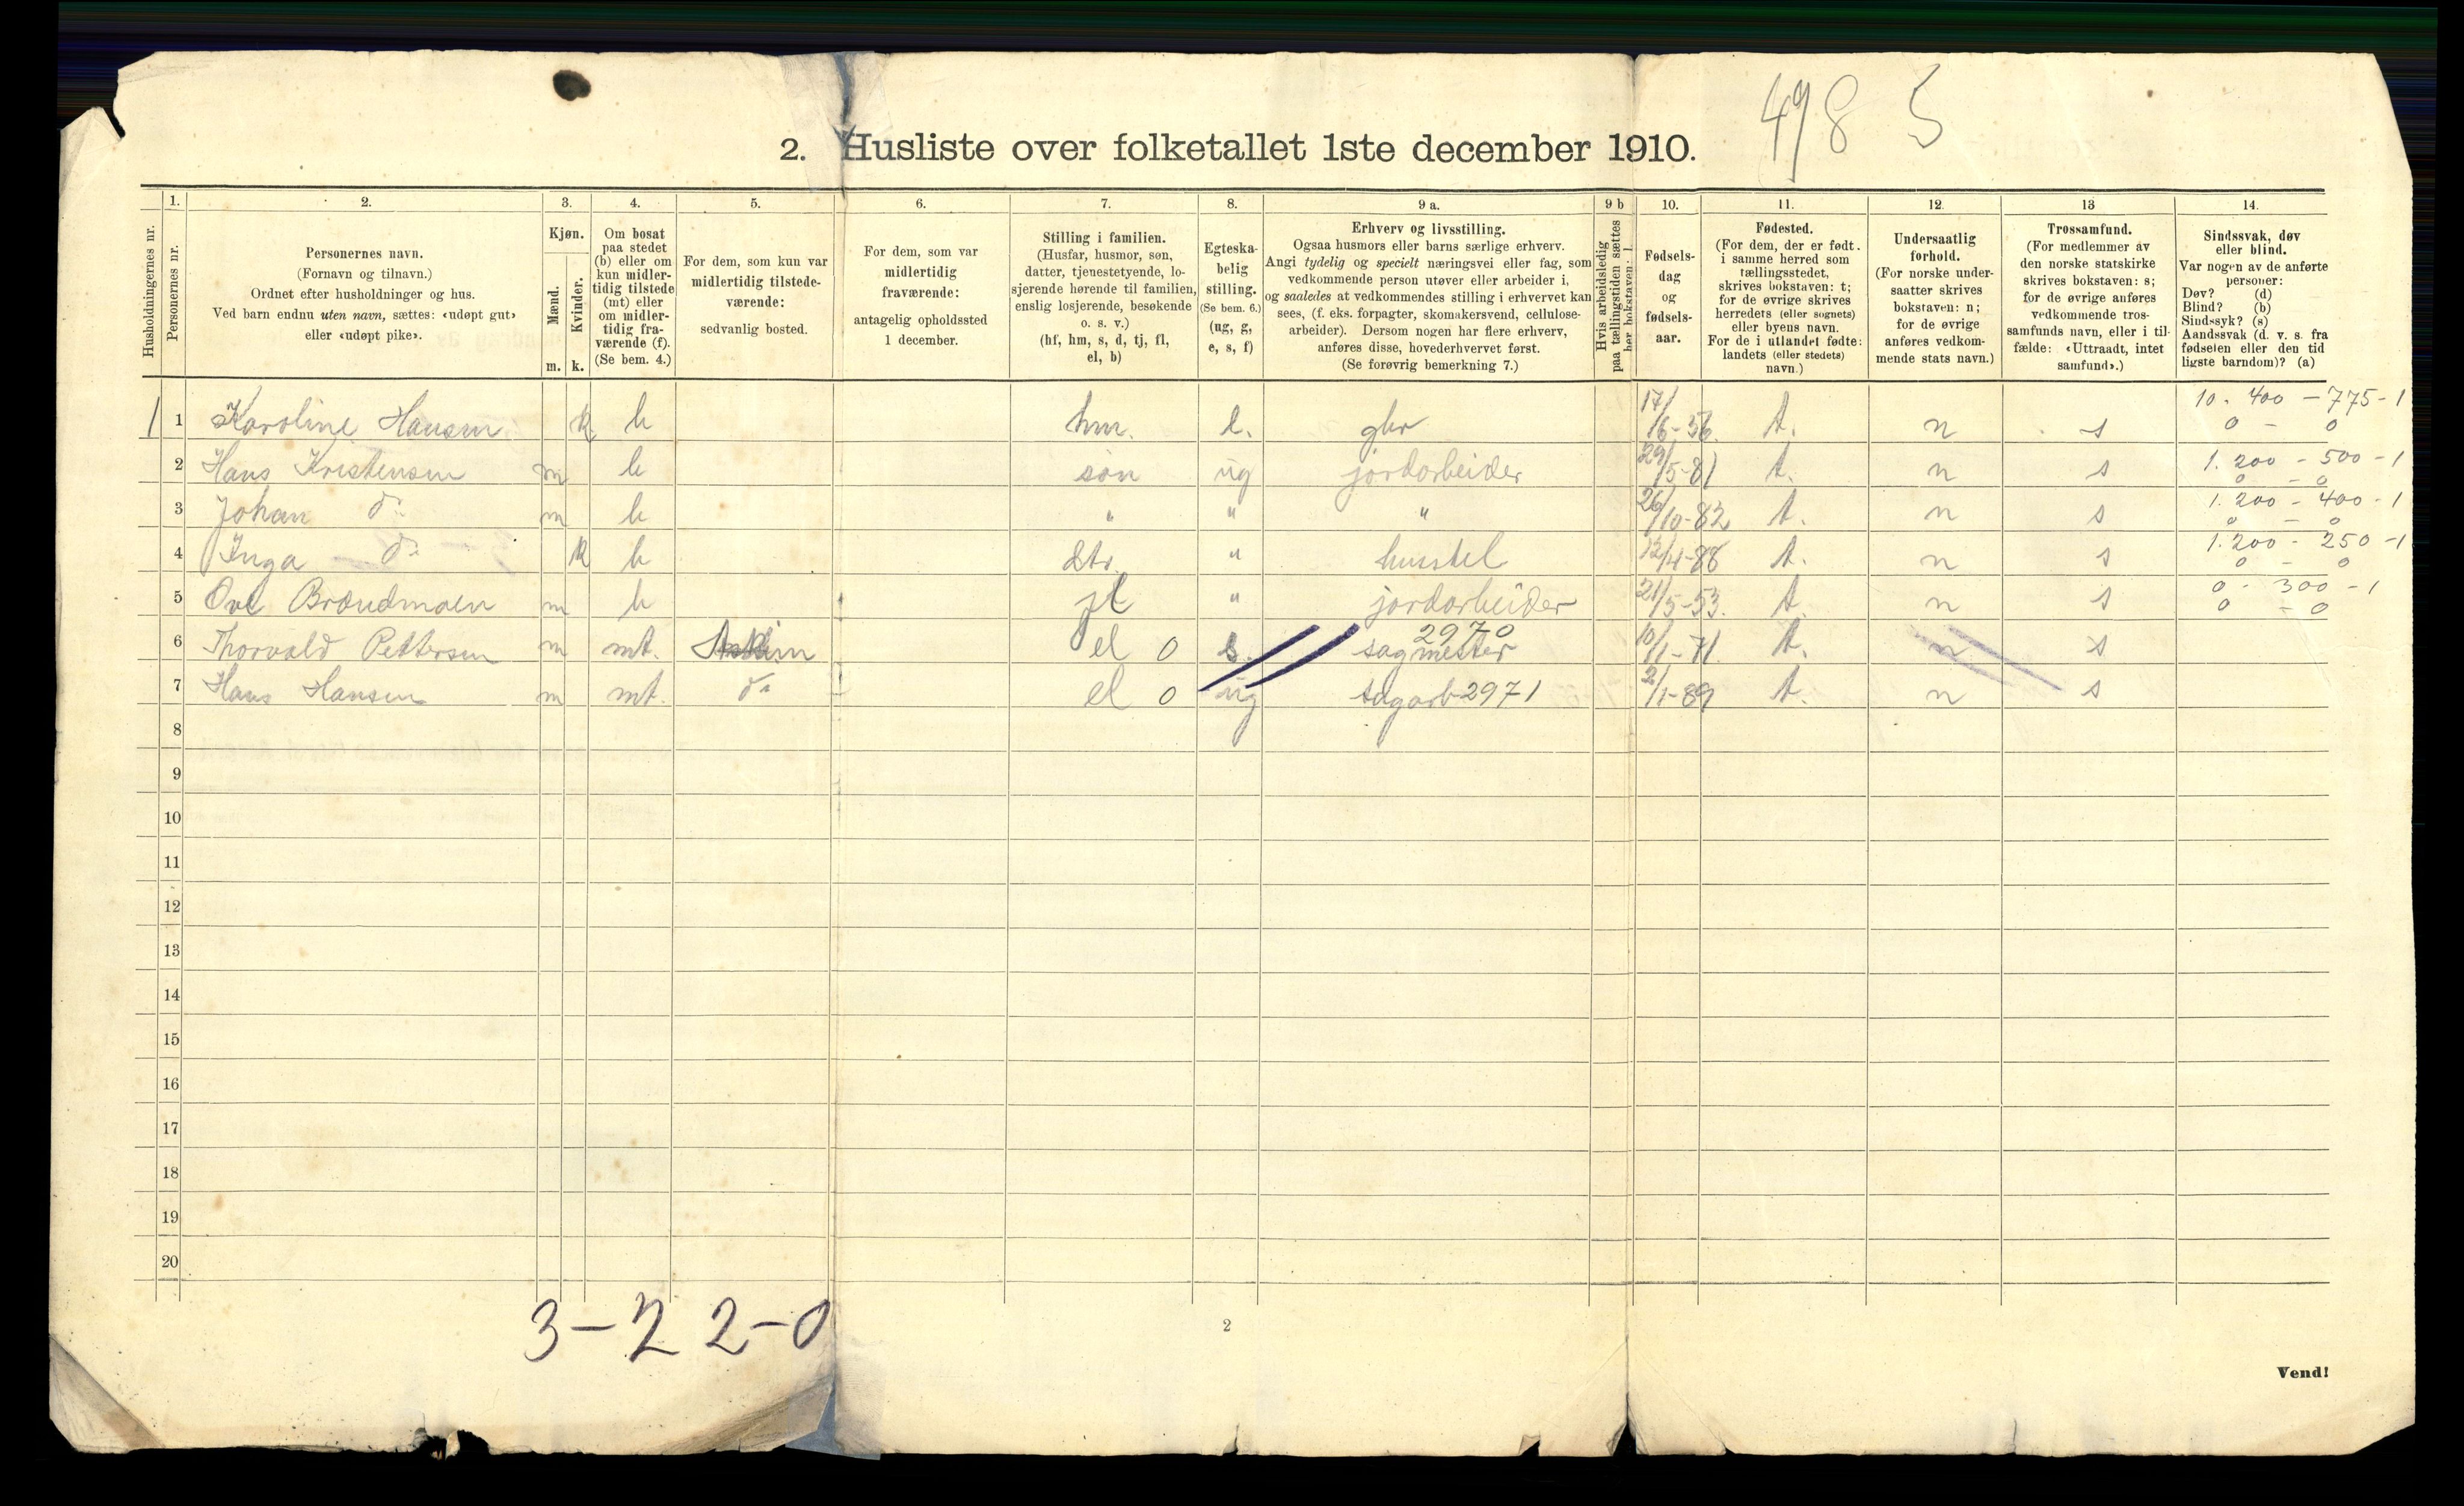 498 5
2. Husliste over folketallet 1ste december 1910.
Husholdningernes nr.
1.
Personernes nr.
2.
Personernes navn.
(Fornavn og tilnavn.)
Ordnet efter husholdninger og hus.
Ved barn endnu uten navn, sættes: «udøpt gut»
eller «udøpt pike».
3.
Kjøn.
Mænd.
Kvinder.
m. k.
4.
Om bosat
paa stedet
(b) eller om
kun midler-
tidig tilstede
(mt) eller
om midler-
tidig fra-
værende (f).
(Se bem. 4.)
5.
For dem, som kun var
midlertidig tilstede-
værende:
sedvanlig bosted.
6.
For dem, som var
midlertidig
fraværende:
antagelig opholdssted
1 december.
7.
Stilling i familien.
(Husfar, husmor, søn,
datter, tjenestetyende, lo-
sjerende hørende til familien,
enslig losjerende, besøkende
o. s. v.)
(hf, hm, s, d, tj, fl,
el, b)
8.
Egteska-
belig
stilling.
(Se bem. 6.)
(ug, g,
e, s, f)
9 a.
Erhverv og livsstilling.
Ogsaa husmors eller barns særlige erhverv.
Angi tydelig og specielt næringsvei eller fag, som
vedkommende person utøver eller arbeider i,
og saaledes at vedkommendes stilling i erhvervet kan
sees, (f. eks. forpagter, skomakersvend, cellulose-
arbeider). Dersom nogen har flere erhverv,
anføres disse, hovederhvervet først.
(Se forøvrig bemerkning 7.)
9 b
Hvis arbeidsledig
paa tællingstiden sættes
her bokstaven: l.
10.
Fødsels-
dag
og
fødsels-
aar.
11.
Fødested.
(For dem, der er født
i samme herred som
tællingsstedet,
skrives bokstaven: t;
for de øvrige skrives
herredets (eller sognets)
eller byens navn.
For de i utlandet fødte:
landets (eller stedets)
navn.)
12.
Undersaatlig
forhold.
(For norske under-
saatter skrives
bokstaven: n;
for de øvrige
anføres vedkom-
mende stats navn.)
13
Trossamfund.
(For medlemmer av
den norske statskirke
skrives bokstaven: s;
for de øvrige anføres
vedkommende tros-
samfunds navn, eller i til-
fælde: «Uttraadt, intet
samfund».)
14.
Sindssvak, døv
eller blind.
Var nogen av de anførte
personer:
Døv? (d)
Blind? (b)
Sindssyk? (s)
Aandssvak (d. v. s. fra
fødselen eller den tid
ligste barndom)? (a)
1 1 Karoline Hansen k b hm. e. gbr 17/6-56. t. n s 10. 400 - 775-1
0 - 0
2 Hans Kristensen m b søn ug jordarbeider 29/5-81 t. n s 1. 200 - 500 - 1
0 - 0
3 Johan do m b " " " 26/10-82 t. n s 1. 200 - 400 - 1
0 - 0
4 Inga do k b dtr. " husstel 12/4-88 t. n s 1. 200 - 250 - 1
0 - 0
5 Ove Brændmoen m b fl " jordarbeider 21/5-53. t. n s 0 - 300 - 1
0 - 0
2970
6 Thorvald Pettersen m mt. el 0 s. sagmester 10/1-71. t. n s
7 Hans Hansen m mt. do el 0 ug sagarb 2971 2/1-89 t. n s
8
9
10
11
12
13
14
15
16
17
18
19
20
3-2 2-0
2
Vend!